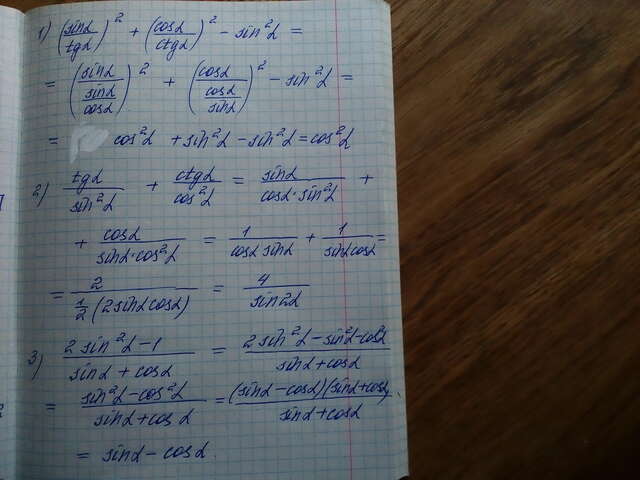 1) (sinα/tgα)² + (cosα/ctgα)² − sin²α =
= (sinα/(sinα/cosα))² + (cosα/(cosα/sinα))² − sin²α =
= cos²α + sin²α − sin²α = cos²α
2) tgα/sin²α + ctgα/cos²α = sinα/(cosα·sin²α) +
+ cosα/(sinα·cos²α) = 1/(cosα sinα) + 1/(sinα cosα) =
= 2/(1/2(2sinα cosα)) = 4/sin2α
3) (2sin²α−1)/(sinα + cosα) = (2sin²α−sin²α−cos²α)/(sinα+cosα)
= (sin²α−cos²α)/(sinα+cosα) = (sinα−cosα)(sinα+cosα)/(sinα+cosα)
= sinα − cosα.